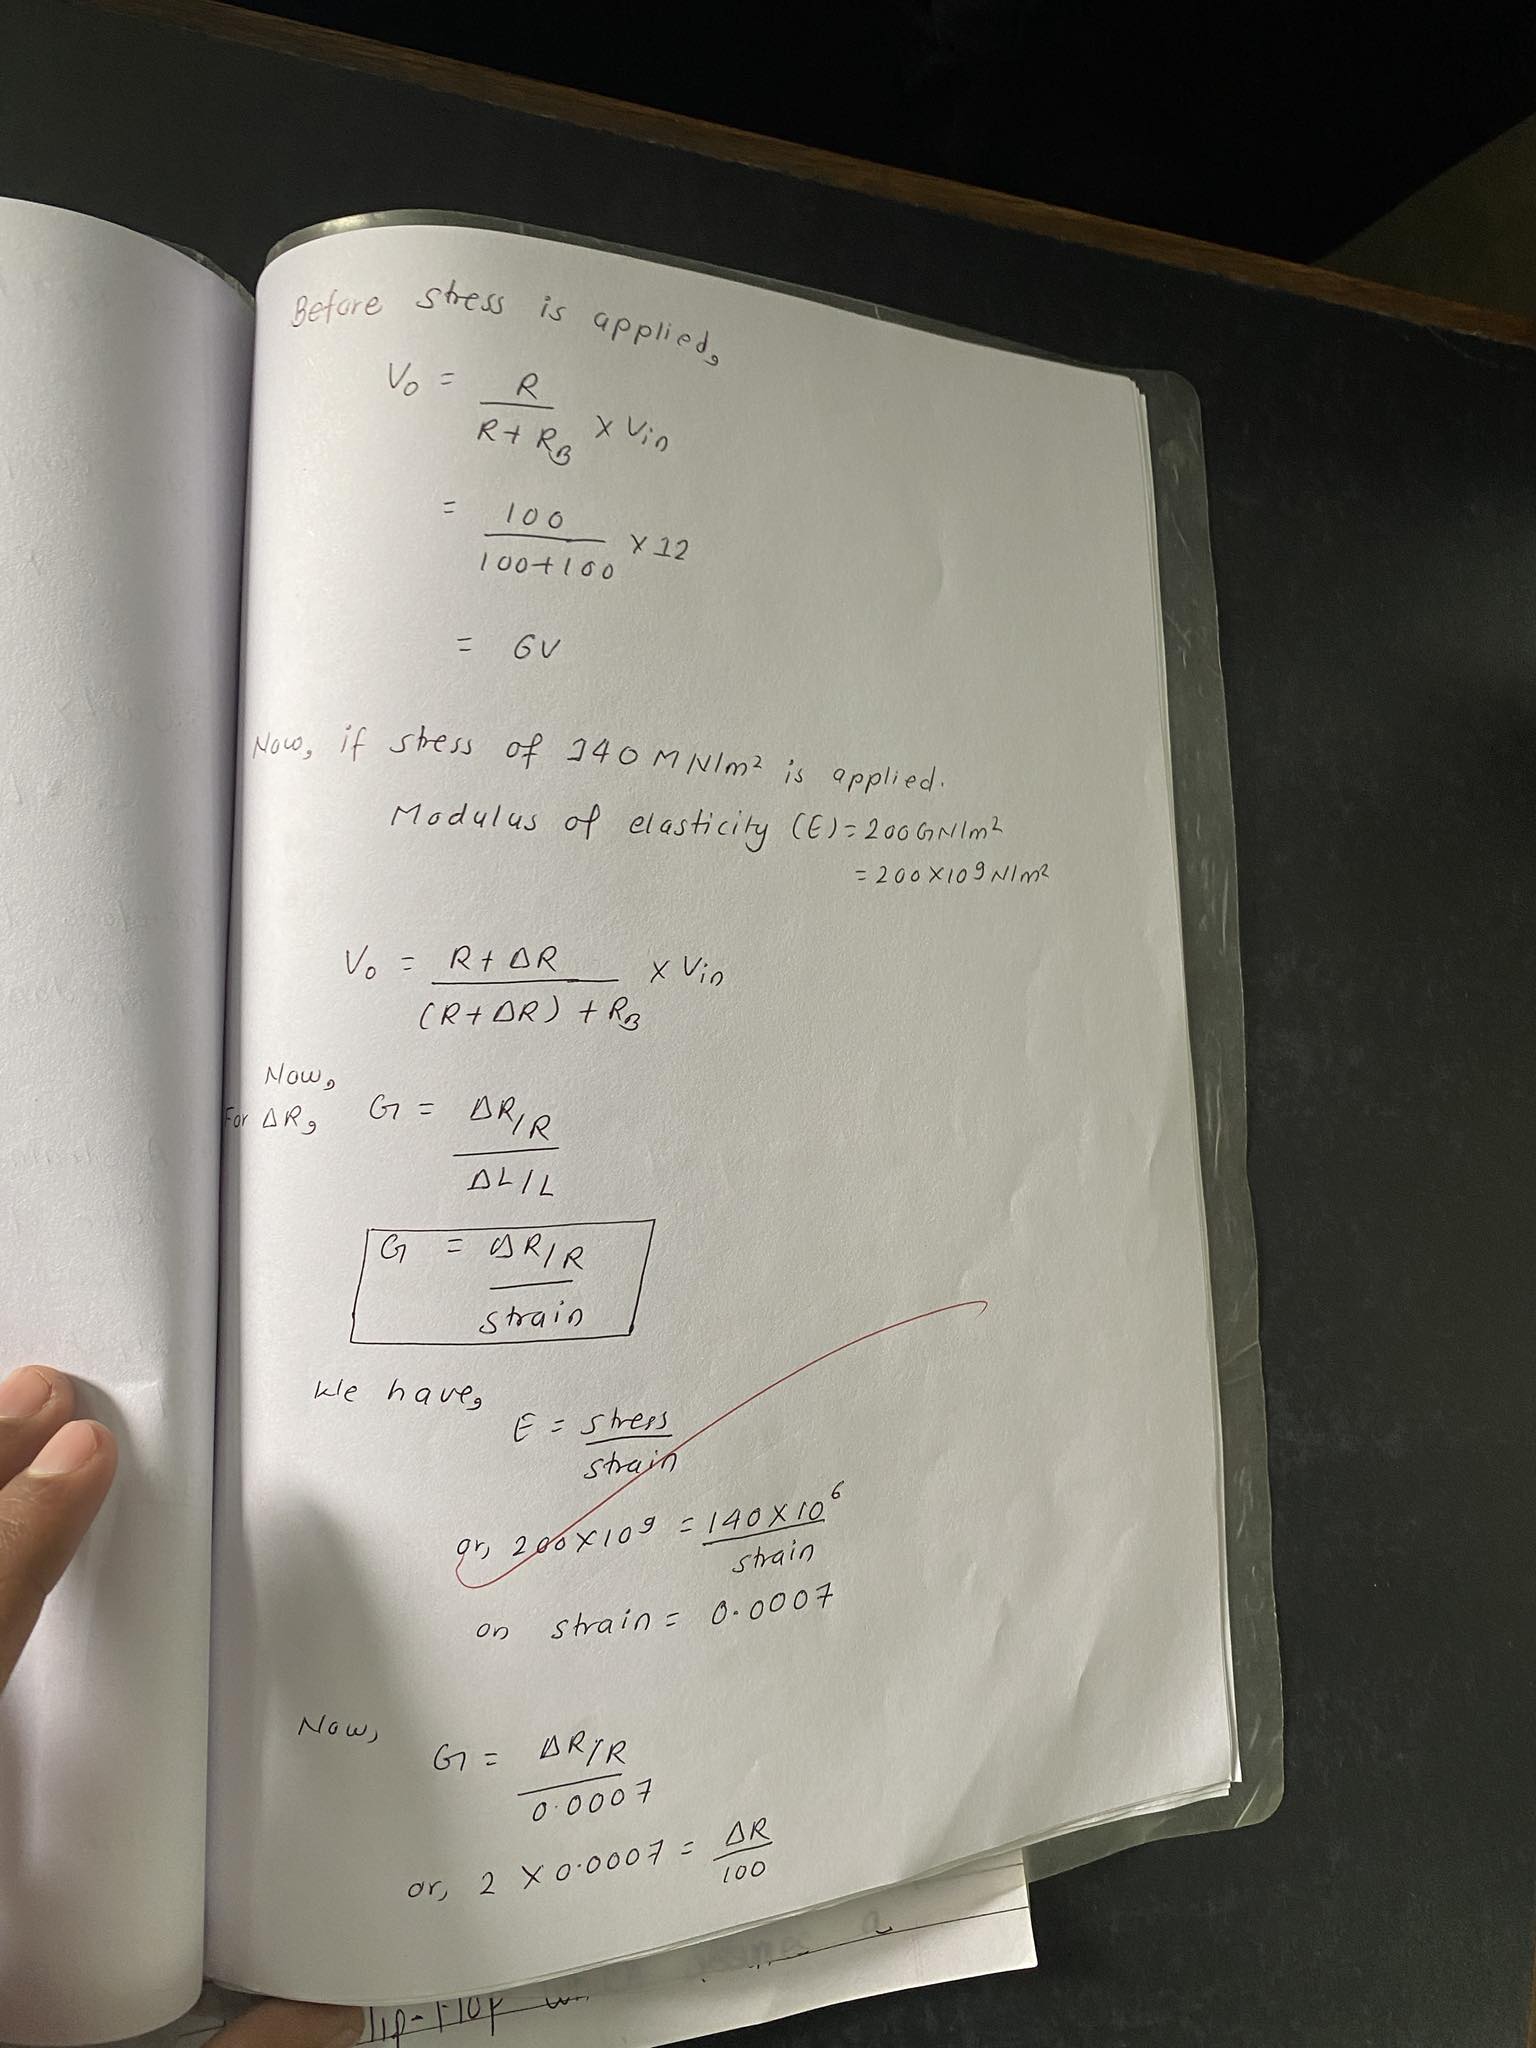 Before stress is applied,
V₀ = R / (R + R_B) × Vin
= 100 / (100+100) × 12
= 6V
Now, if stress of 140 MN/m² is applied.
Modulus of elasticity (E) = 200GN/m²
= 200×10⁹N/m²
V₀ = (R + ΔR) / ((R+ΔR) + R_B) × Vin
Now,
For ΔR, G = (ΔR/R) / (ΔL/L)
G = (ΔR/R) / strain
We have,
E = stress / strain
or, 200×10⁹ = 140×10⁶ / strain
or, strain = 0.0007
Now,
G = (ΔR/R) / 0.0007
or, 2 × 0.0007 = ΔR / 100